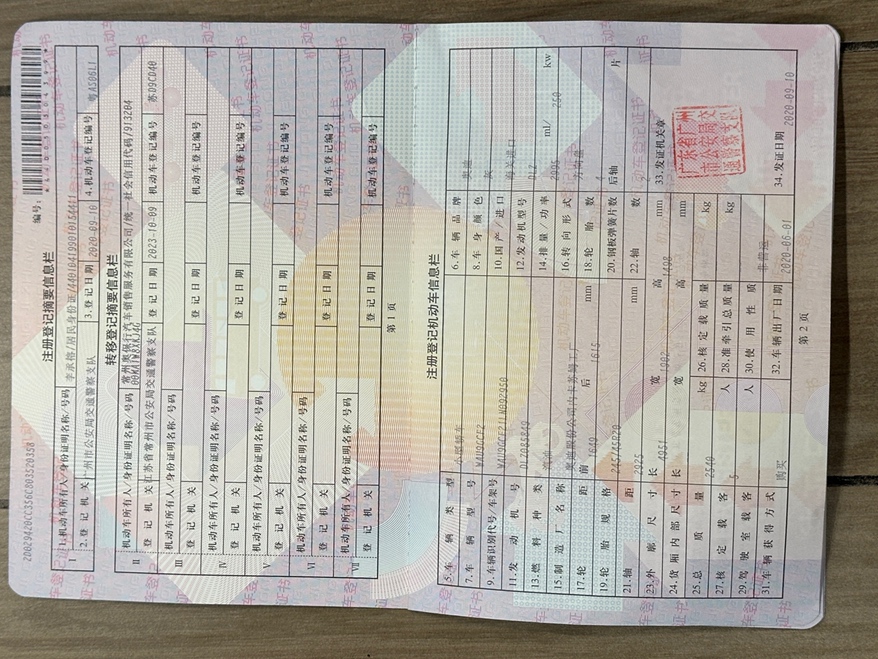 编号:
注册登记摘要信息栏
1 1.机动车所有人/身份证明名称/号码 李承榕/居民身份证/
2.登记机关 广州市公安局交通警察支队 3.登记日期 2020-09-10 4.机动车登记编号 粤AS06L1
转移登记摘要信息栏
II 机动车所有人/身份证明名称/号码 常州奥保行汽车销售服务有限公司/统一社会信用代码/913204
登记机关 江苏省常州市公安局交通警察支队 登记日期 2023-10-09 机动车登记编号 苏D9CD40
III 机动车所有人/身份证明名称/号码
登记机关 登记日期 机动车登记编号
IV 机动车所有人/身份证明名称/号码
登记机关 登记日期 机动车登记编号
V 机动车所有人/身份证明名称/号码
登记机关 登记日期 机动车登记编号
VI 机动车所有人/身份证明名称/号码
登记机关 登记日期 机动车登记编号
VII 机动车所有人/身份证明名称/号码
登记机关 登记日期 机动车登记编号
第 1 页
注册登记机动车信息栏
5.车辆类型 小型轿车 6.车辆品牌 奥迪
7.车辆型号 WAU9GCF2 8.车身颜色 灰
9.车辆识别代号/车架号 10.国产/进口 进口
11.发动机号 12.发动机型号 DLZ
13.燃料种类 汽油 14.排量/功率 2995 ml/ 250 kw
15.制造厂名称 16.转向形式 方向盘
17.轮距 前 1649 后 1615 mm 18.轮胎数 4
19.轮胎规格 245/45R20 20.钢板弹簧片数 后轴 片
21.轴距 2925 mm 22.轴数 2
23.外廓尺寸 长 4951 宽 1902 高 1498 mm 33.发证机关章
24.货厢内部尺寸 长 宽 高 mm
25.总质量 2540 kg 26.核定载质量 kg
27.核定载客 5 人 28.准牵引总质量 kg
29.驾驶室载客 人 30.使用性质 非营运
31.车辆获得方式 购买 32.车辆出厂日期 2020-06-01 34.发证日期 2020-09-10
广东省广州
市公安局交
通警察支队
第 2 页